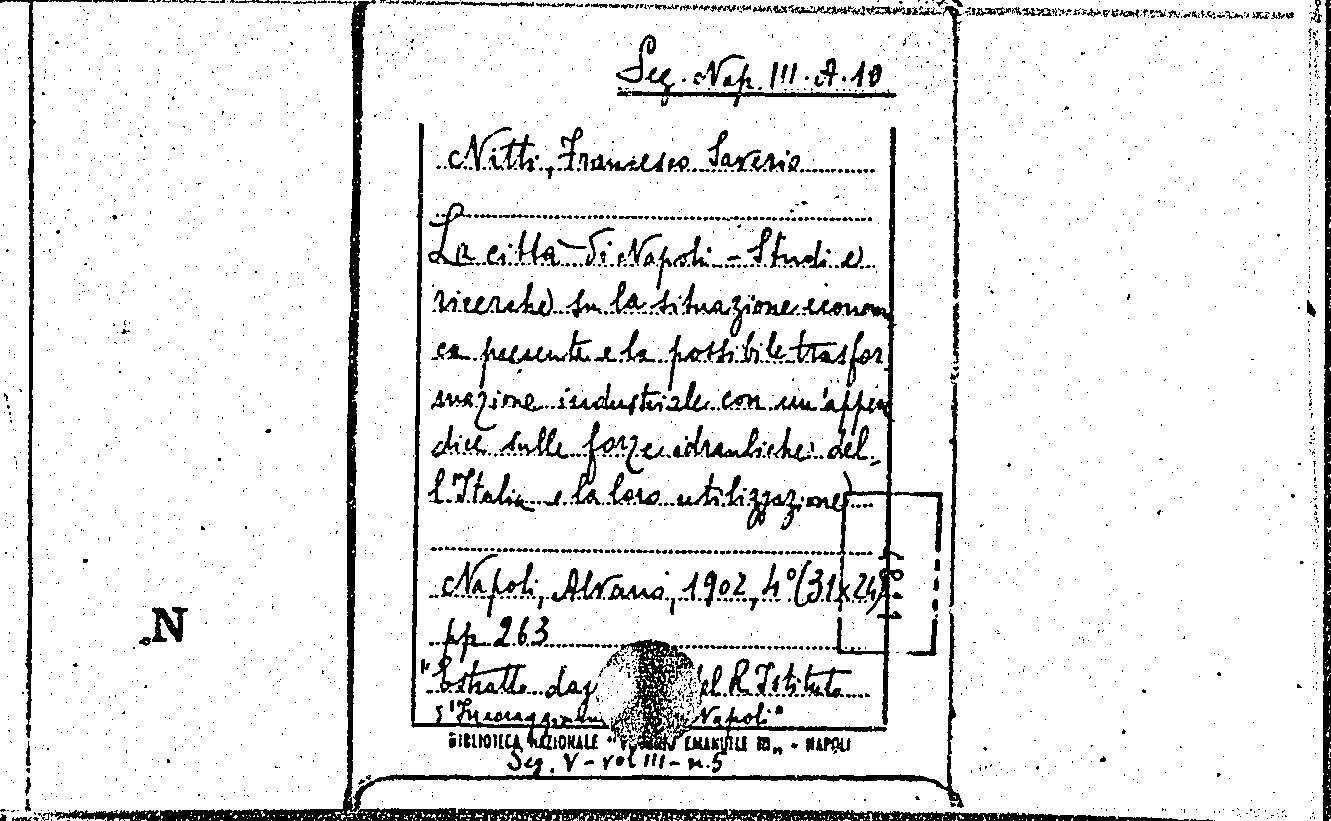 Seg. Nap. III. A. 10
Nitti, Francesco Saverio
La città di Napoli - Studi e
ricerche su la situazione econom
ca presente e la possibile trasfor
mazione industriale con un'appen
dice sulle forze idrauliche del-
l'Italia e la loro utilizzazione
Napoli, Alvano, 1902, 4° (31x24)
pp 263
"Estratto dag del R. Istituto
d'Incoraggiam Napoli"
BIBLIOTECA NAZIONALE "V EMANUELE III„ - NAPOLI
Seg. V - vol III - n. 5
N